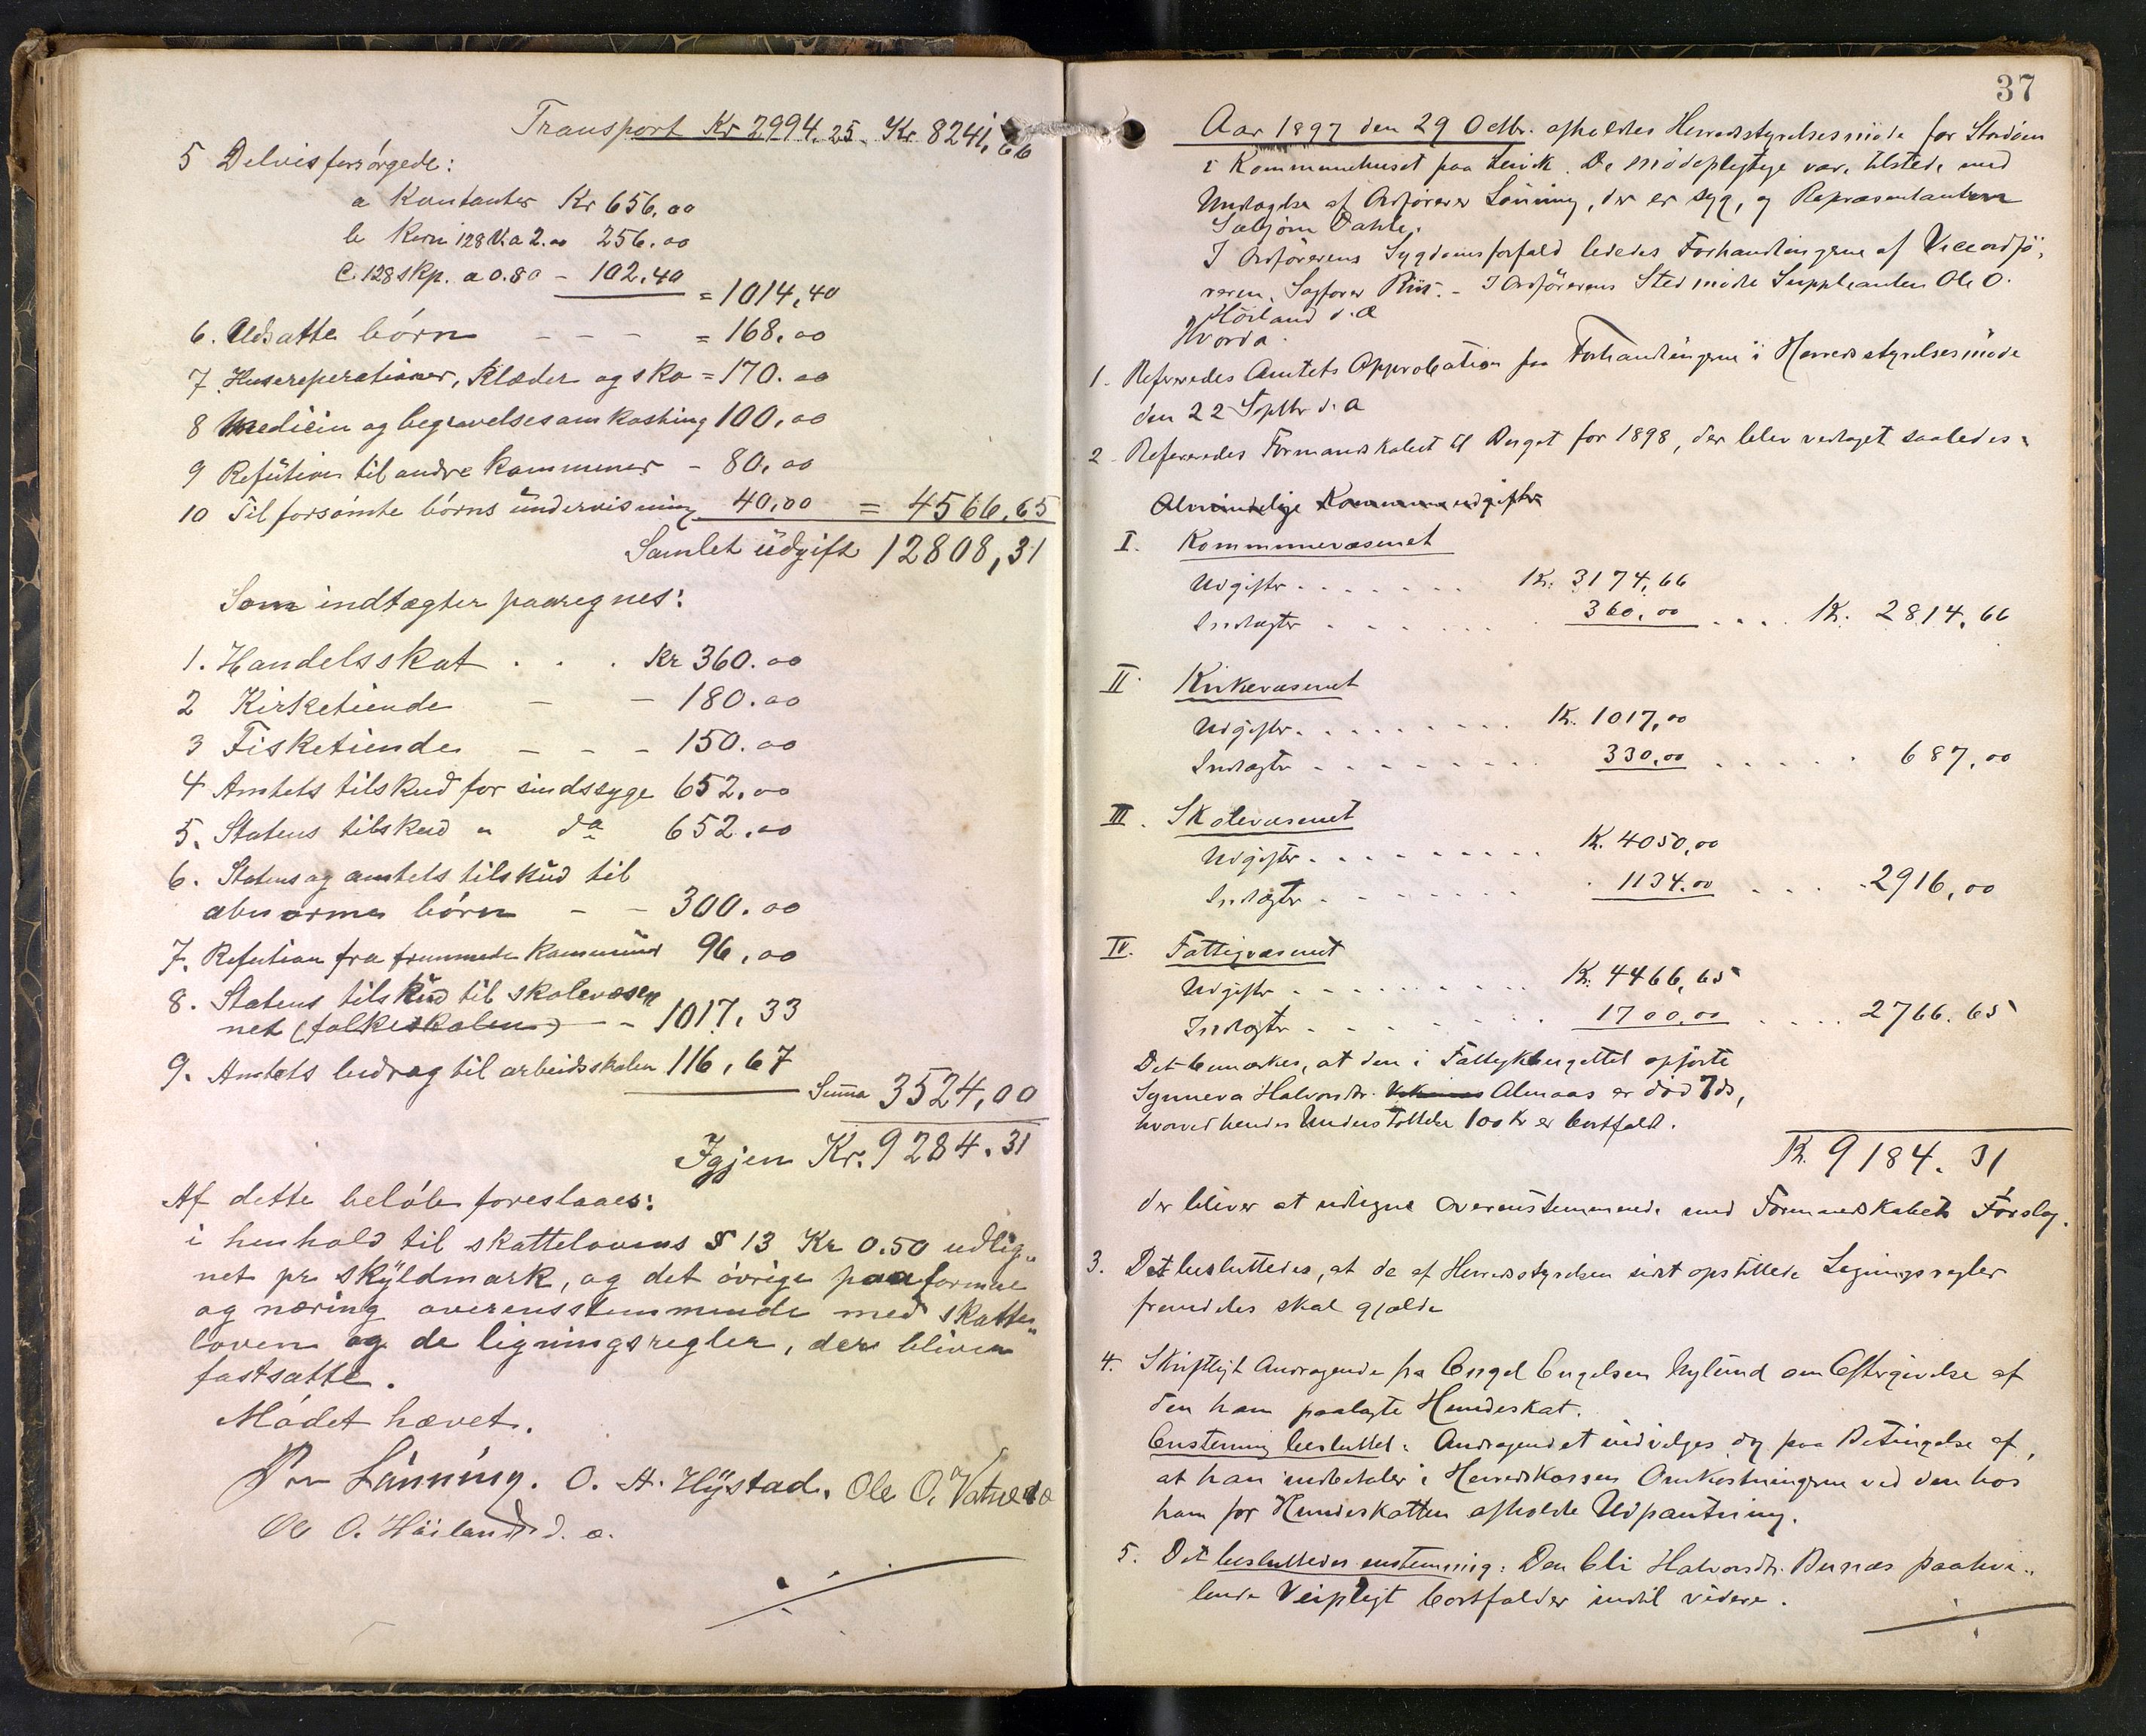 Transport Kr 2994.25. Kr. 8241,66
5 Delvis forsørgede:
a Kontanter Kr 656,00
b Korn 128 V. a 2.00 256.00
c. 128 skp. a 0.80 - 102.40
= 1014,40
6. Udsatte børn - - - = 168.00
7. Husereperationer, Klæder og sko = 170.00
8 Medicin og begravelsesomkostning 100,00
9 Refution til andre kommuner - 80,00
10 Til forsømte børns undervisning 40,00 = 4566,65
Samlet udgift 12808,31
Som indtægter paaregnes:
1. Handelsskat . . . Kr 360.00
2 Kirketiende - - 180.00
3 Fisketiende - - - 150.00
4 Amtets tilskud for sindssyge 652.00
5. Statens tilskud " do 652.00
6. Statens og amtets tilskud til
abnorme børn - - 300.00
7. Refution fra fremmede kommuner 96,00
8. Statens tilskud til skolevæse
net (folkeskolen) - - 1017,33
9. Amtets bidrag til arbeidsskolen 116,67
Suma 3524,00
Igjen Kr. 9284.31
Af dette beløb foreslaaes:
i henhold til skattelovens § 13 Kr 0.50 udlig„
net pr skyldmark, og det øvrige paa formue
og næring overensstemmende med skatte„
loven og de ligningsregler, der bliver
fastsatte.
Mødet hævet.
Lønning. O. H. Hystad. Ole O. Vatne
Ole O. Høiland d. æ.
37
Aar 1897 den 29 Octbr. afholdtes Herredsstyrelsesmøde for Stordøen
i Kommunehuset paa Lervik. De mødepligtige var tilstede med
Undtagelse af Ordfører Lønning, der er syg, og Repræsentanten
Sæbjørn Dahle.
I Ordførerens Sygdomsforfald lededes Forhandlingerne af Viceordfø-
reren, Sagfører Riis. - I Ordførerens Sted mødte Suppleanten Ole O.
Høiland d. Æ
Hvorda:
1. Refereredes Amtets Approbation paa Forhandlingerne i Herredsstyrelsesmøde
den 22 Septbr d. A
2. Refereredes Formandskabets Budget for 1898, der blev vedtaget saaledes:
Almindelige Kommuneudgifter
I. Kommunevæsenet
Udgifter . . . . . . . Kr. 3174,66
Indtægter . . . . . . . 360,00 . . . . Kr. 2814,66
II. Kirkevæsenet
Udgifter . . . . . . . . Kr. 1017,00
Indtægter - - - - - - - 330,00 . . . . . . 687,00
III. Skolevæsenet
Udgifter . . . . . . . . . Kr. 4050,00
Indtægter . - - - - - . 1134.00 . . . . 2916,00
IV. Fattigvæsenet
Udgifter . . . . . . . . . Kr. 4466,65
Indtægter . - - - - - . 1700,00 . . . . 2766.65
Det bemærkes, at den i Fattigbudgettet opførte
Synneva Halvorsdtr. Almaas er død 7ds,
hvorved hendes Understøttelse 100 Kr er bortfaldt.
Kr. 9184.31
der bliver at udligne overensstemmende med Formandskabets Forslag.
3. Det besluttedes, at de af Herredsstyrelsen sidst opstillede Ligningsregler
fremdeles skal gjælde
4. Skriftligt Andragende fra Engel Engelsen Nylund om Eftergivelse af
den ham paalagte Hundeskat.
Enstemmig besluttet: Andragendet indvilges dog paa Betingelse af,
at han indbetaler i Herredskassen Omkostningerne ved den hos
ham for Hundeskatten afholdte Udpantning.
5. Det besluttedes enstemmig: Den Eli Halvorsdtr. paahvi„
lende Veipligt bortfalder indtil videre.